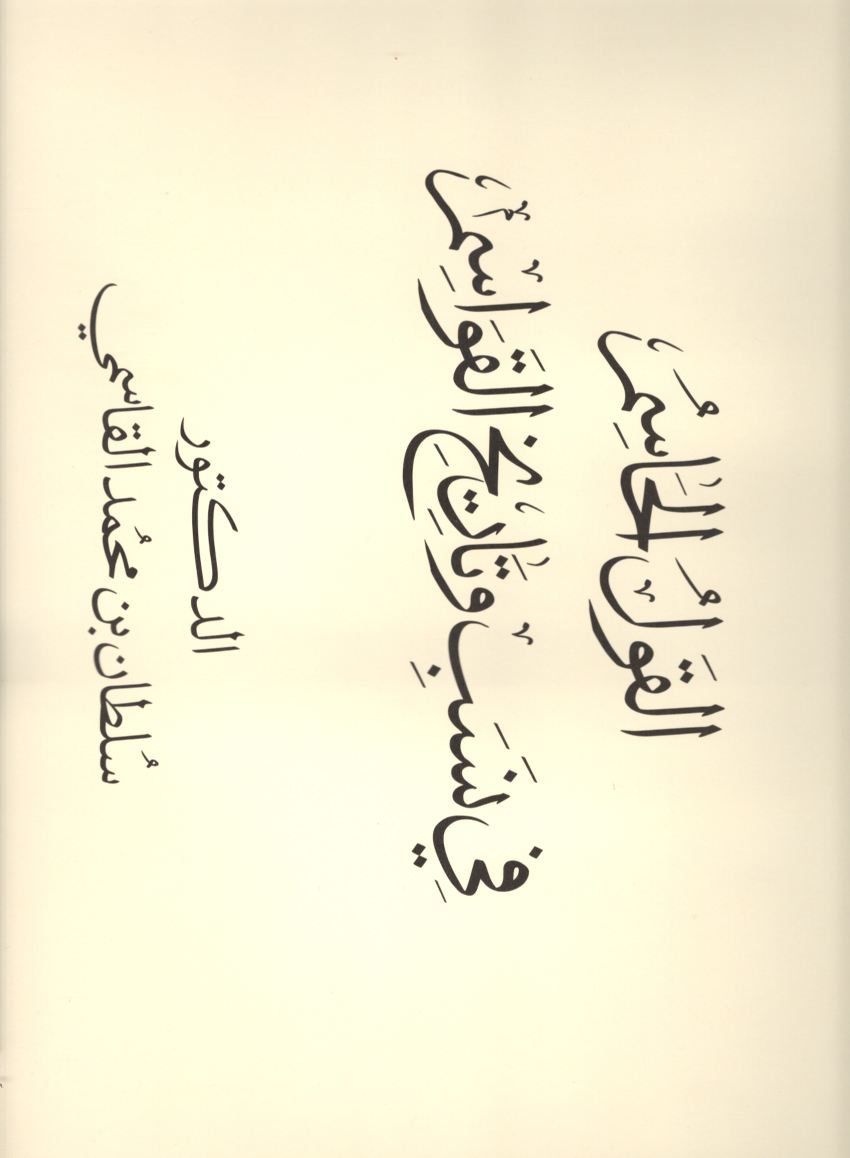 القَوْلُ الحَاسِمُ
في نَسَبِ وتَاريخِ القَوَاسِمْ
الدكتور
سُلطان بن محمُد القاسمي